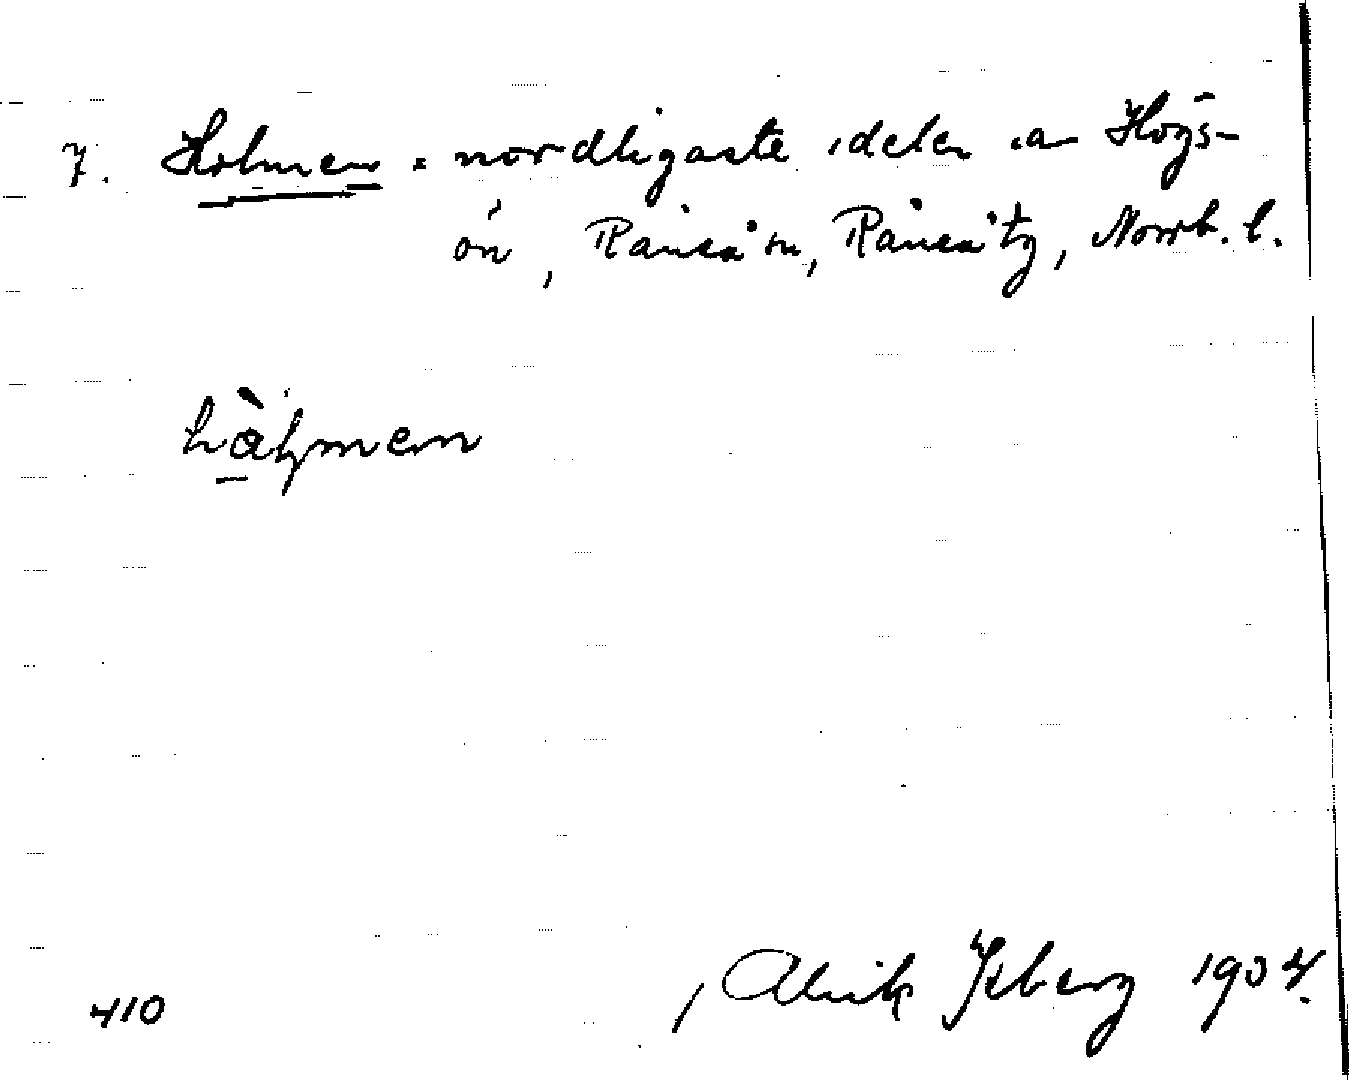 7. Holmen. nordligaste delen a Högs-
ön, Råneå sn, Råneå tg, Norrb. l.
hålmen
410
Ulrik Isberg 1904.